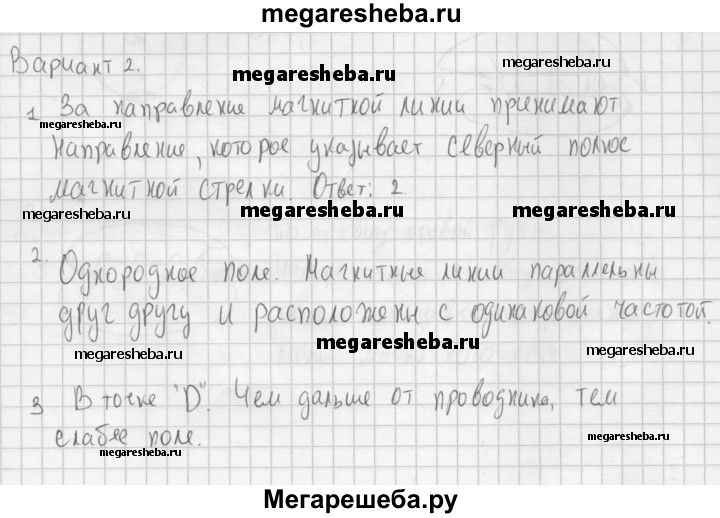 megaresheba.ru
Вариант 2.
megaresheba.ru
megaresheba.ru
1 За направление магнитной линии принимают
megaresheba.ru
направление, которое указывает северный полюс
магнитной стрелки. Ответ: 2
megaresheba.ru megaresheba.ru megaresheba.ru
2. Однородное поле. Магнитные линии параллельны
друг другу и расположены с одинаковой частотой.
megaresheba.ru megaresheba.ru megaresheba.ru
3 В точке "D". Чем дальше от проводника, тем
слабее поле.
megaresheba.ru megaresheba.ru
Мегарешеба.ру